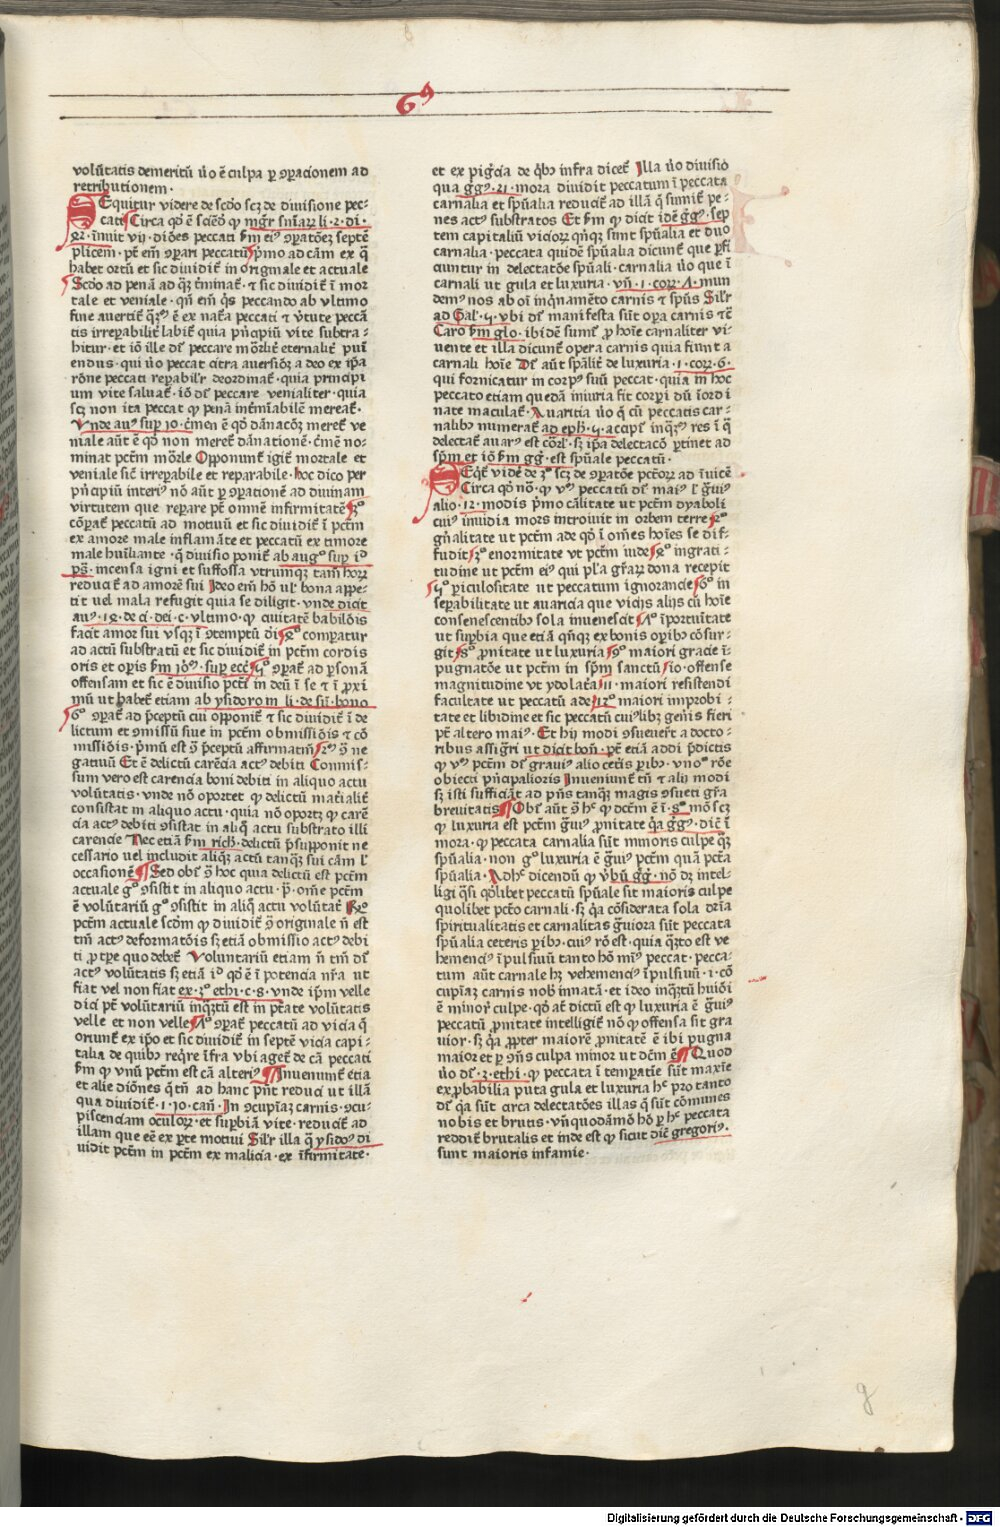 69
volūtatis demeritū v̄o ē culpa ꝑ oꝑacionem ad
retributionem·
SEquitur videre de scd̄o scꝫ de divisione pec-
cati Circa qd̄ ē sciēd̄ ꝙ mgr̄ sn̄iaꝝ li·2·di·
42·īnuit vij·diōes peccati
plicem·
habet ortū et sic dividit̄ in originale et actuale
Scd̄o ad penā ad
tale et veniale·
fine avertit̄
tis irreꝑabilit̄ labit̄ quia pn̄cipiū vite subtra-
hitur·et iō ille dr̄ peccare mōrlit̄ eternalit̄ puī
endus·qui v̄o peccat citra aversiōꝫ a deo ex ip̄a
rōne peccati reꝑabilr̄ deordinat̄·quia principi
um vite salvat̄·iō dr̄ peccare venialiter·quia
scꝫ non ita peccat ꝙ penā int̄miabilē mereat̄·
Vnde aug9 suꝑ io·c̄men ē qd̄ dānacōꝫ meret̄ ve
niale aūt ē qd̄ non meret̄ dānationē·c̄mē no-
minat pctm̄ mōrle Opponunt̄ igit̄ mortale et
veniale sic̄ irreꝑabile et reparabile·hoc dico per
pn̄cipiū interi9 nō aūt ꝑ oꝑationē ad divinam
virtutem que reꝑare pt̄ omnē infirmitatē
cōꝑat̄ peccatū ad motivū et sic dividit̄ ī pctm̄
ex amore male inflamāte et peccatū ex timore
male huīliante·q̄ divisio ponit̄ ab aug9 suꝑ id
ps̄·incensa igni et suffossa vtrumqꝫ tam̄ hoꝝ
reducit̄ ad amorē sui Ideo em̄ hō vl̄ bona appe-
tit vel mala refugit quia se diligit·vnde dicit
au9·14·de ci·dei·c·vltimo·ꝙ civitatē babilōis
facit amor sui vsqꝫ ī ꝯtemptū di comꝑatur
ad actū substratū et sic dividit̄ in pctm̄ cordis
oris et oꝑis
offensam et sic ē divisio pcti in deū ī se et ī ꝓxi
mū ut habet̄ etiam ab ysidoro in li·de sū·bono
6° oꝑat̄ ad p̄ceptū cui opponit̄ et sic dividit̄ ī de
lictum et ꝯmissū sive in pctm̄ obmissiōis et cō
missiōis·p̄mū est ꝯ̄ p̄ceptū affirmatīū 2m ꝯ̄ ne
gativū Et ē delictū carēcia act9 debiti Commis-
sum vero est carencia boni debiti in aliquo actu
volūtatis·vnde nō oportet ꝙ delictū mat̄ialit̄
consistat in aliquo actu·quia nō oportꝫ ꝙ carē
cia act9 debiti ꝯsistat in aliq̄ actu substrato illi
carencie Nec etiā
cessario vel includit aliqꝫ actū tanqꝫ sui cām l̄
occasionē Sed obr̄ ꝯ̄ hoc quia delictū est pctm̄
actuale g° ꝯsistit in aliquo actu·p̄·om̄e pctm̄
ē volūtariū g° ꝯsistit in aliq̄ actu volūtat̄
pctm̄ actuale scd̄m ꝙ dividit̄ ꝯ̄ originale n̄ est
tm̄ act9 deformatōis sꝫ etiā obmissio act9 debi
ti ꝓ tꝑe quo debet̄ Voluntariū etiam n̄ tm̄ dr̄
act9 volūtatis sꝫ etiā id qd̄ ē ī potencia nr̄a ut
fiat vel non fiat ex·3°·ethi·c·8·vnde ipm̄ velle
dici pt̄ volūtariū inqꝫtū est in ptate volūtatis
velle et non velle
oriunt̄ ex ip̄o et sic dividit̄ in septē vicia capi-
talia de quibꝯ reqre īfra vbi aget̄ de cā peccati
alteri9 Inveniunt̄ etiā
et alie diōnes q̄ tn̄ ad hanc pn̄t reduci ut illā
qua dividit̄·1·io·can̄·In ꝯcupīaꝫ carnis·ꝯcu-
piscenciam oculoꝝ·et suꝑbiā vite·reducit̄ ad
illam que eē ex ꝑte motivi Silr̄ illa q̄ ysido9 di
vidit pctm̄ in pctm̄ ex malicia·ex īfirmitate·
et ex pigcia de qbꝯ infra dicet̄ Illa v̄o divisio
qua gg9·21·mora dividit peccatum ī peccata
carnalia et spūalia reducit̄ ad illā q̄ sumit̄ pe-
nes act9 substratos
tem capitaliū vicioꝝ qn̄qꝫ sunt spūalia et duo
carnalia·peccata quidē spūalia dicunt̄ que ꝑfi
ciuntur in delectatōe spūali·carnalia v̄o que ī
carnali ut gula et luxuria·vn̄·1·coꝝ·A·mun
dem9 nos ab oī inqnamēto carnis et spūs Silr̄
ad Gal̄·5·vbi dr̄ manifesta sūt oꝑa carnis
Caro
vente et illa dicunt̄ opera carnis quia fiunt a
carnali hoīe Dr̄ aūt spālit̄ de luxuria·1·coꝝ·6·
qui fornicatur in corp9 suū peccat·quia in hoc
peccato etiam quedā iniuria fit corpi dū īordi
nate maculat̄·Avaritia v̄o q̄ cū peccatis car-
nalibꝯ numerat̄ ad eph̄·5·accapit̄ inqꝫ9 res ī q̄
delectat̄ avar9 est corr̄l·sꝫ ip̄a delectacō ꝑtinet ad
est spūale peccatū·
alio·12·modis p̄mo cālitate ut pctm̄ dyaboli
cui9 invidia mors introivit in orbem terre
gn̄alitate ut pctm̄ ade qd̄ ī om̄es hoīes se dif-
fudit 3° enormitate vt pctm̄ iude 4° ingrati-
tudine ut pctm̄ ei9 qui pl̄a gr̄aꝝ dona recepit
5° ꝑiculositate ut peccatum ignorancie 6° in
seꝑabilitate ut avaricia que vicijs alijs cū hoīe
consenescentibꝯ sola iuvenescit 7° īportūitate
ut suꝑbia que etiā qn̄qꝫ ex bonis oꝑibꝯ cōsur-
git 8° ꝓnitate ut luxuria 9° maiori gracie ī-
pugnatōe ut pctm̄ in spm̄ sanctū io·offense
magnitudine vt ydolatā 11·maiori resistendi
facultate ut peccatū ade 12° maiori improbi-
tate et libidine et sic peccatū cui9libꝫ gen̄is fieri
pt̄ altero mai9·Et hij modi ꝯsuever̄t a docto-
ribus assigr̄i ut dicit bon̄·pt̄ etiā addi p̄dictis
ꝙ vn̄9 pctm̄ dr̄ gravi9 alio cetis ꝑibꝯ·vno9 rōe
obiecti pn̄cipalioris Inveniunt̄ tn̄ et alij modi
sꝫ isti sufficiāt ad pn̄s tanqꝫ magis ꝯsueti gr̄a
brevitatis Obr̄ aūt ꝯ̄
ꝙ luxuria est pctm̄ ḡvi9 ꝓnitate q̄a gg9·dic̄ ī
mora·ꝙ peccata carnalia sūt minoris culpe qꝫ
spūalia·non g° luxuria ē ḡvi9 pctm̄ quā pctā
spūalia·
ligi qsi qd̄libet peccatū spūale sit maioris culpe
quolibet pcto carnali·sꝫ q̄a cōsiderata sola dr̄ia
spiritualitatis et carnalitas ḡviora sūt peccata
spūalia ceteris ꝑibꝯ·cui9 rō est·quia qꝫto est ve
hemenci9 īpulsivū tanto hō min9 peccat·pecca-
tum aūt carnale hꝫ vehemenci9 īpulsivū·i·cō
cupiaꝫ carnis nobꝯ innatā·et ideo inqꝫtū huiōi
ē minor̄ culpe·qd̄ at̄ dictū est ꝙ luxuria ē ḡvi9
peccatū ꝓnitate intelligit̄ nō ꝙ offensa sit gra
vior·sꝫ q̄a ꝓpter maiorē ꝓnitatē ē ibi pugna
maior et ꝑ ꝯn̄s culpa minor ut dc̄m ē Quod
v̄o dr̄·3·ethi·ꝙ peccata ī temꝑatie sūt maxīe
exꝓbabilia puta gula et luxuria hc̄ pro tanto
dr̄ q̄a sūt circa delectatōes illas q̄ sūt cōmunes
nobis et brutis·vn̄ quodāmō hō ꝑ hc̄ peccata
reddit̄ brutalis et inde est ꝙ sicut dic̄ gregori9·
sunt maioris infamie·
g
Digitalisierung gefördert durch die Deutsche Forschungsgemeinschaft - DFG